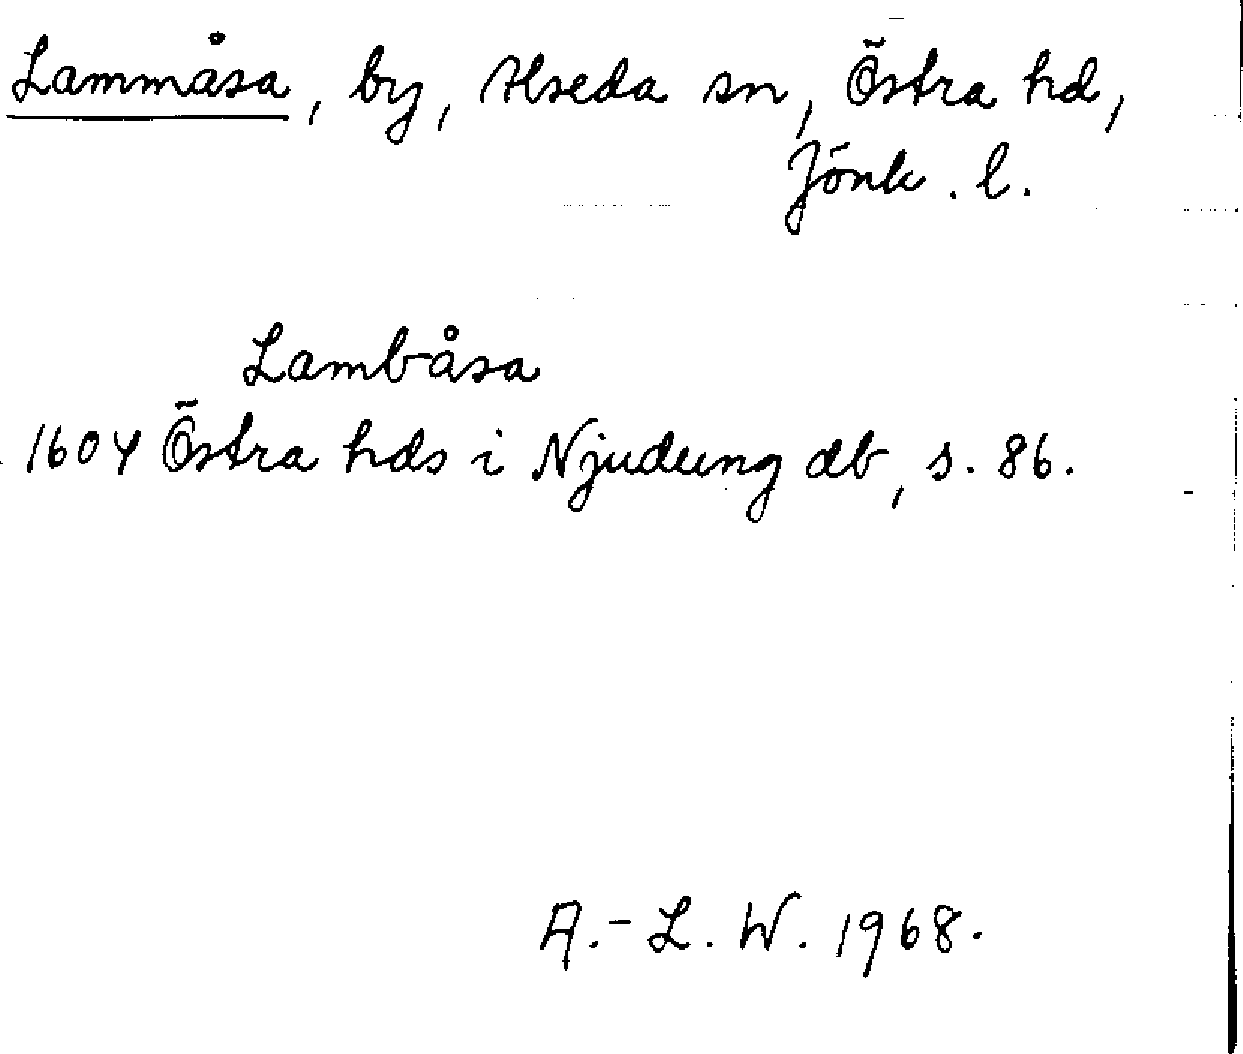 Lammåsa, by, Alseda sn, Östra hd,
Jönk. l.
Lambåsa
1604 Östra hds i Njudung db, s. 86.
A.-L. W. 1968.